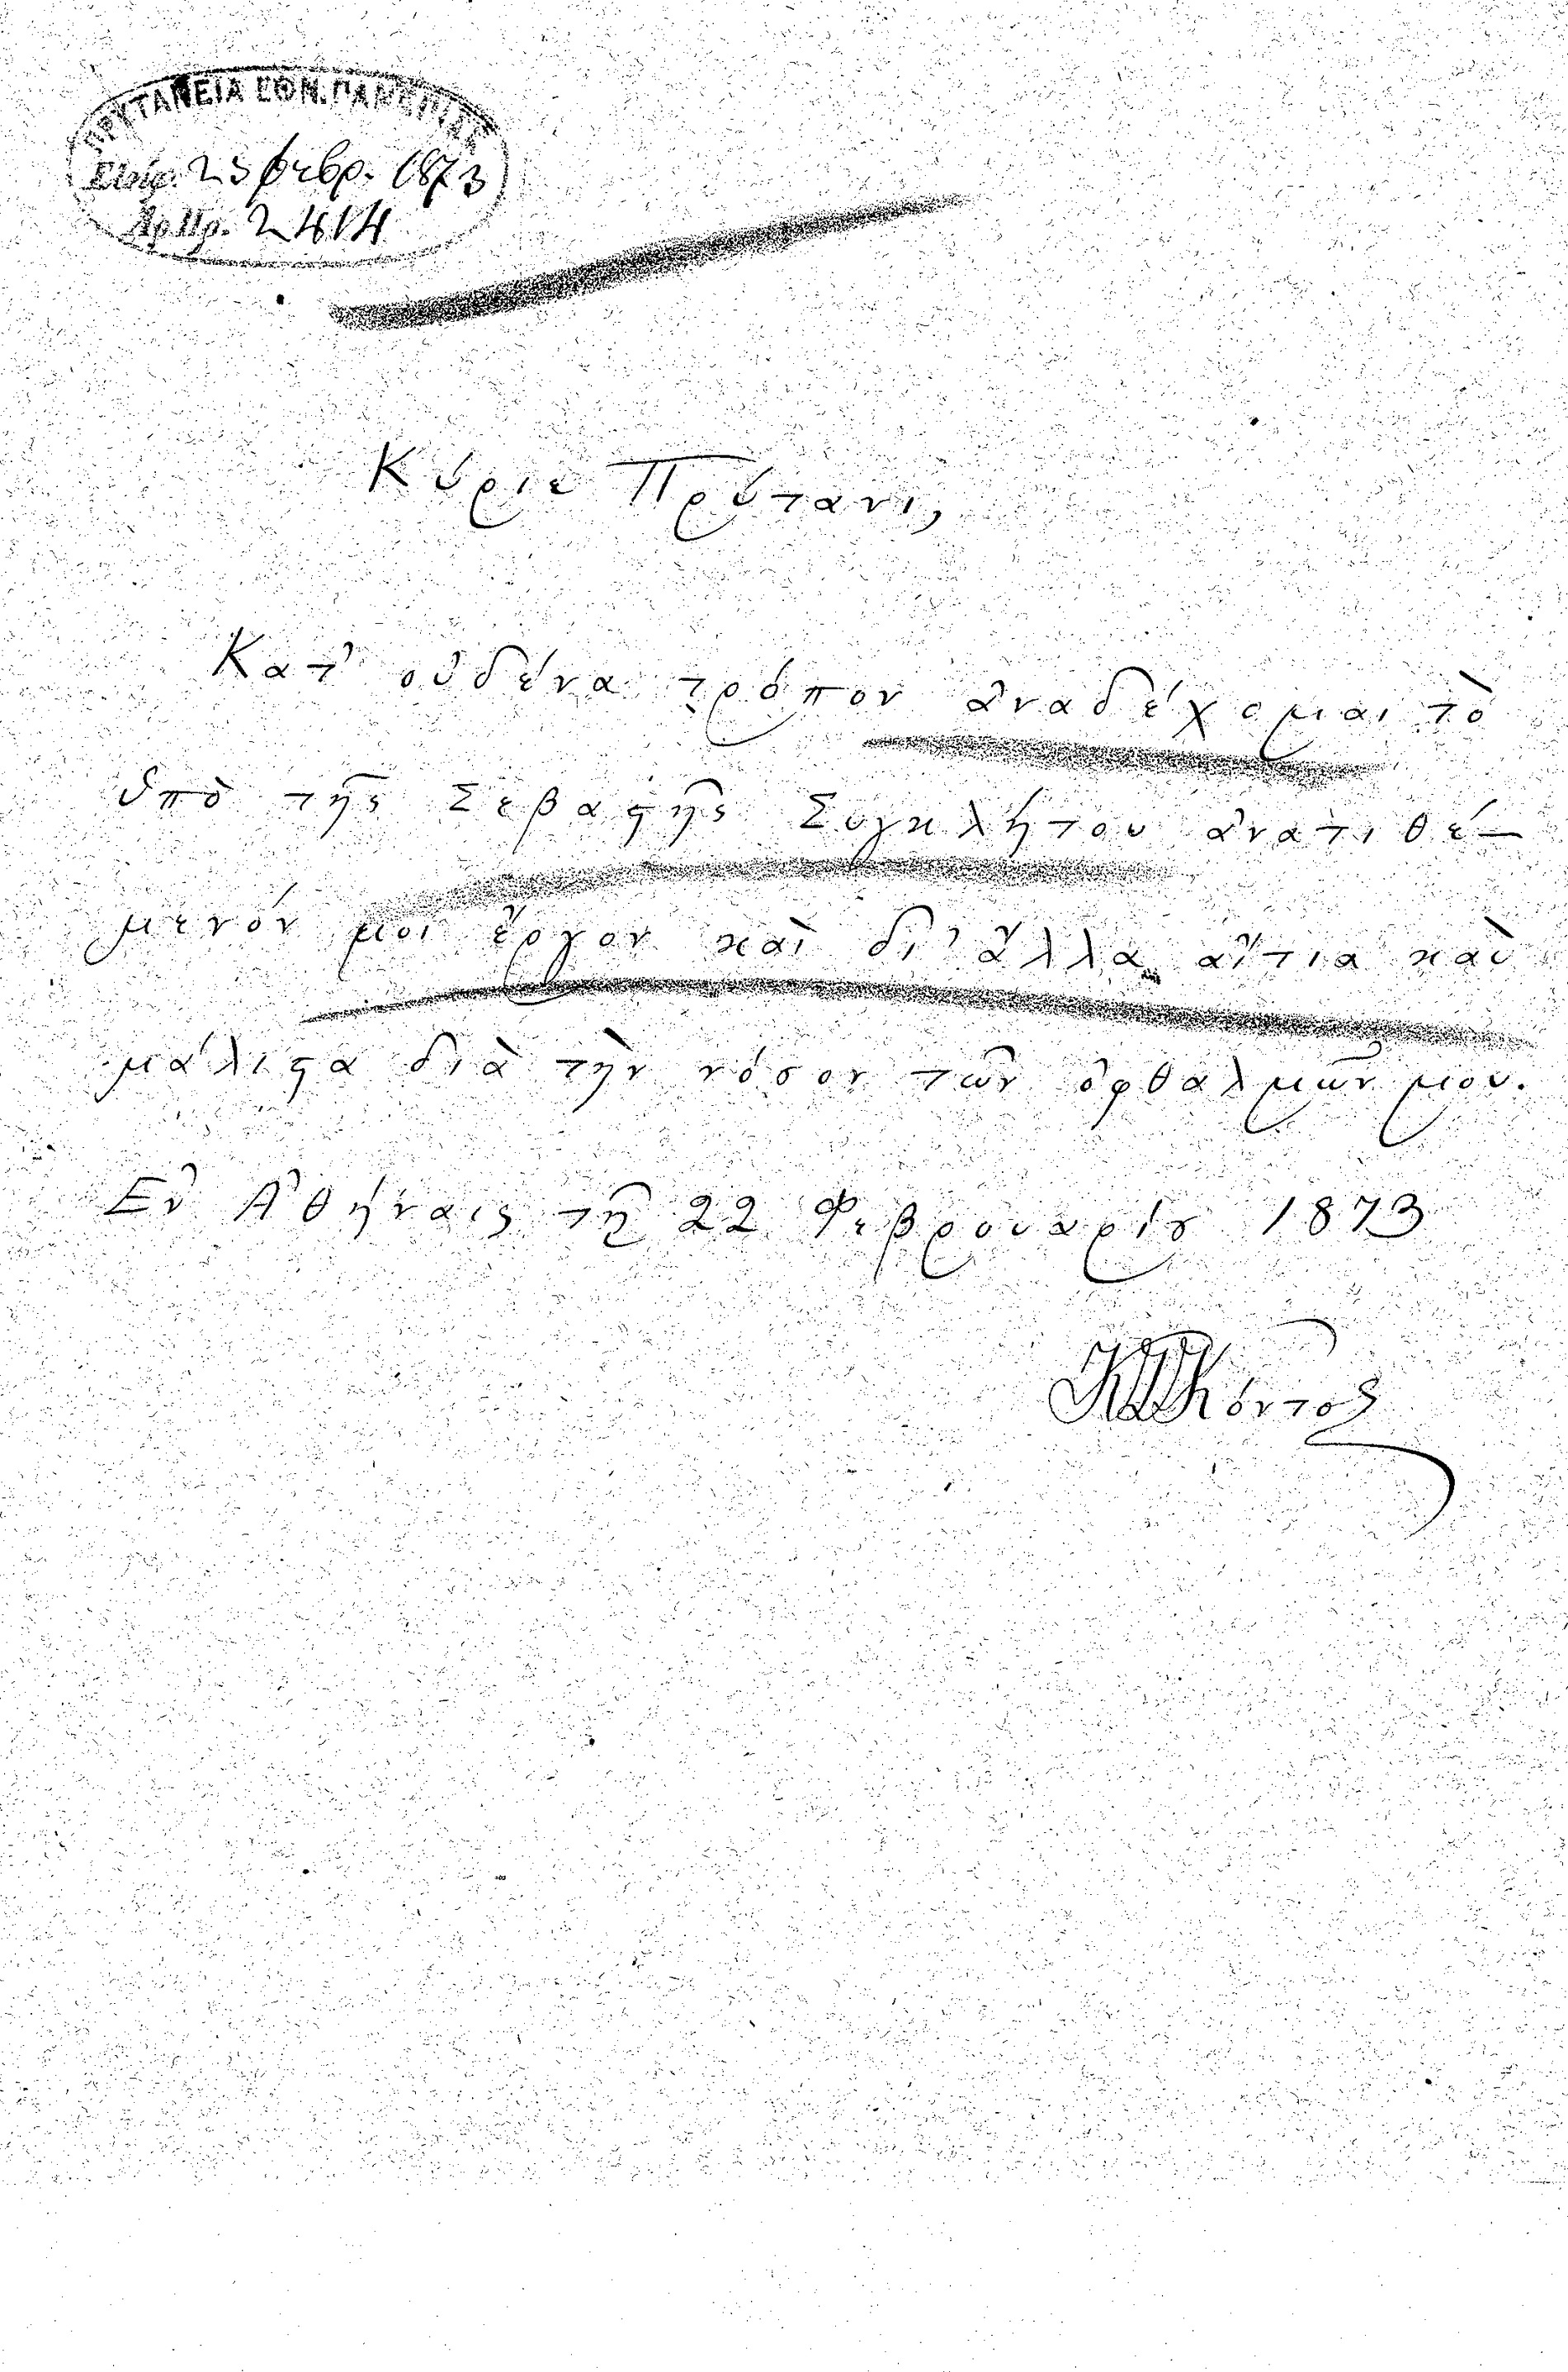 ΠΡΥΤΑΝΕΙΑ ΕΘΝ. ΠΑΝΕΠΙΣΤ
Εἰσηχ. 23 φεβρ. 1873
Ἀρ. Πρ. 2414
Κύριε Πρύτανι,
Κατ' οὐδένα τρόπον ἀναδέχομαι τὸ
ὑπὸ τῆς Σεβαϛῆς Συγκλήτου ἀνατιθέ-
μενόν μοι ἔργον καὶ δι' ἄλλα αἴτια καὶ
μάλιϛα διὰ τὴν νόσον τῶν ὀφθαλμῶν μου.
Ἐν Ἀθήναις τῇ 22 Φεβρουαρίȣ 1873
Κ Σ Κόντος